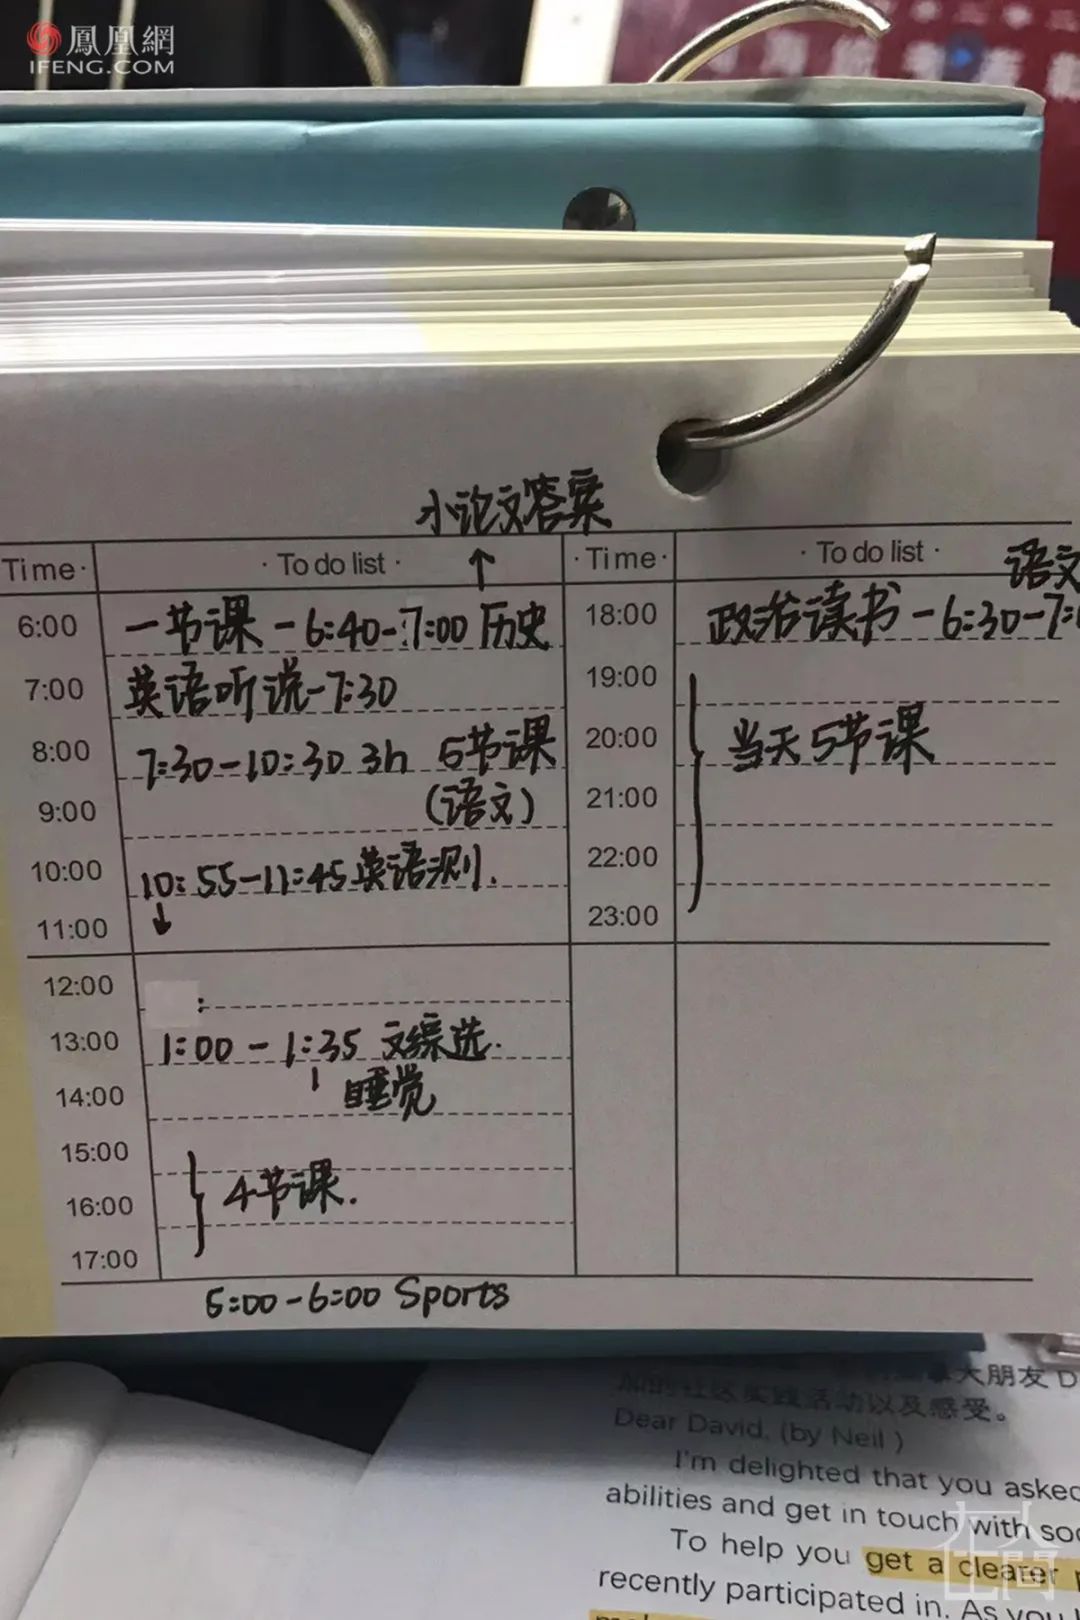 鳳凰網
IFENG.COM
小论文答案
↑
Time · · To do list · · Time · · To do list ·
语文
6:00 一节课 - 6:40-7:00 历史
7:00 英语听说-7:30
8:00 7:30-10:30 3h 5节课
9:00 (语文)
10:00 10:55-11:45 英语测.
11:00 ↓
12:00 :
13:00 1:00 - 1:35 文综选.
14:00 睡觉
15:00
16:00 4节课.
17:00
5:00-6:00 Sports
18:00 政治读书-6:30-7:
19:00
20:00 当天5节课
21:00
22:00
23:00
大朋友 D
加的社区实践活动以及感受。
Dear David, (by Neil )
I'm delighted that you asked
abilities and get in touch with soc
To help you get a clearer
recently participated in. As you
在人间